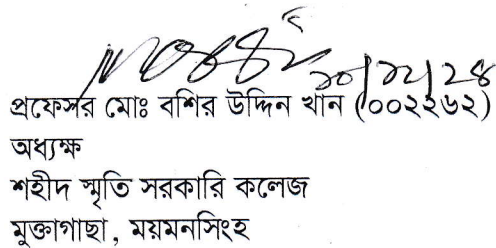 ১০/১২/২৪
প্রফেসর মোঃ বশির উদ্দিন খান (০০২২৬২)
অধ্যক্ষ
শহীদ স্মৃতি সরকারি কলেজ
মুক্তাগাছা, ময়মনসিংহ